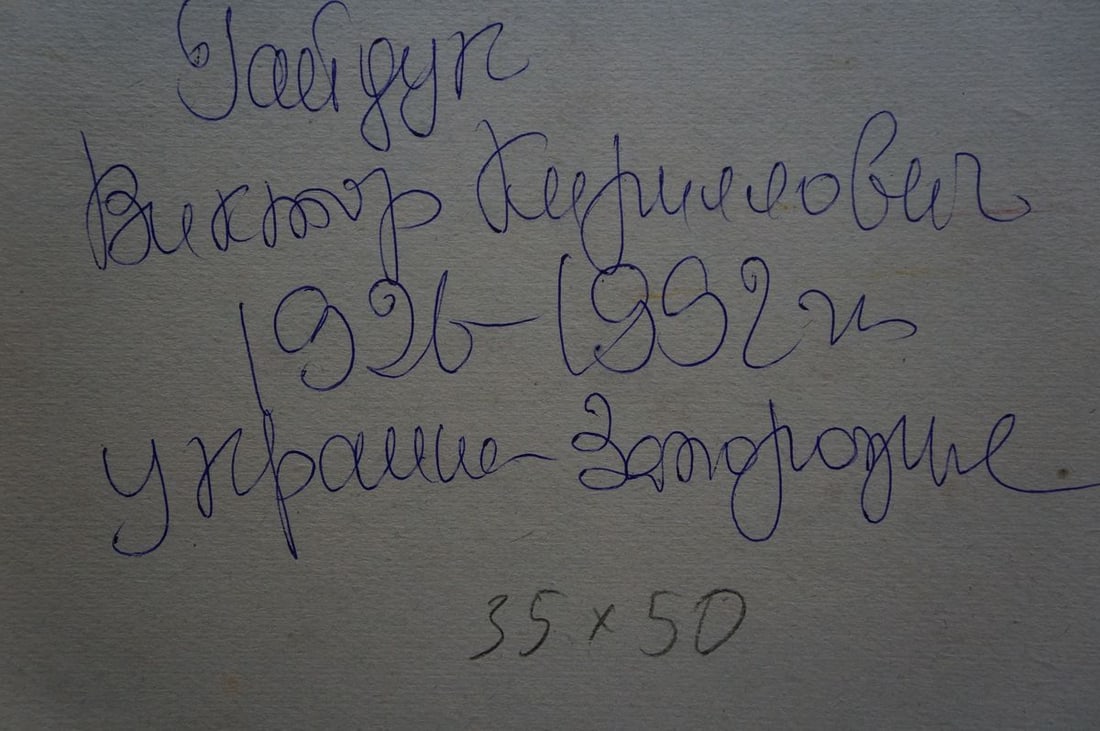 Гайдук
Виктор Кириллович
1926-1992 гг
Украина-Запорожие
35 x 50